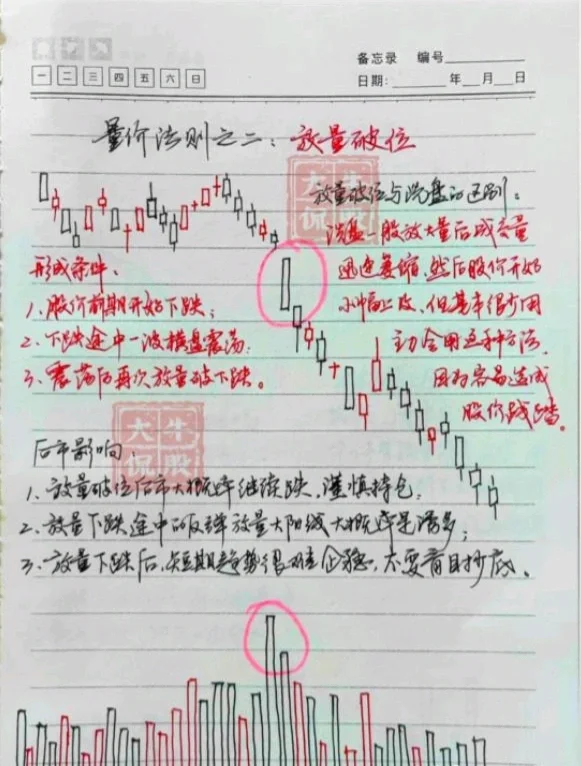 备忘录 编号
一 二 三 四 五 六 日
日期: 年 月 日
量价法则之二：放量破位
大牛
侃股
放量破位与洗盘的区别：
洗盘一般放大量后成交量
迅速萎缩，然后股价开始
小幅上攻，但基本很少用
主力会用这种方法，
因为容易造成
股价践踏。
形成条件：
1、股价前期开始下跌；
2、下跌途中一波横盘震荡；
3、震荡后再次放量破下跌。
大牛
侃股
后市影响：
1、放量破位后市大概率继续跌，谨慎持仓；
2、放量下跌途中的反弹放量大阳线大概率是诱多；
3、放量下跌后，短期趋势很难企稳，不要盲目抄底。